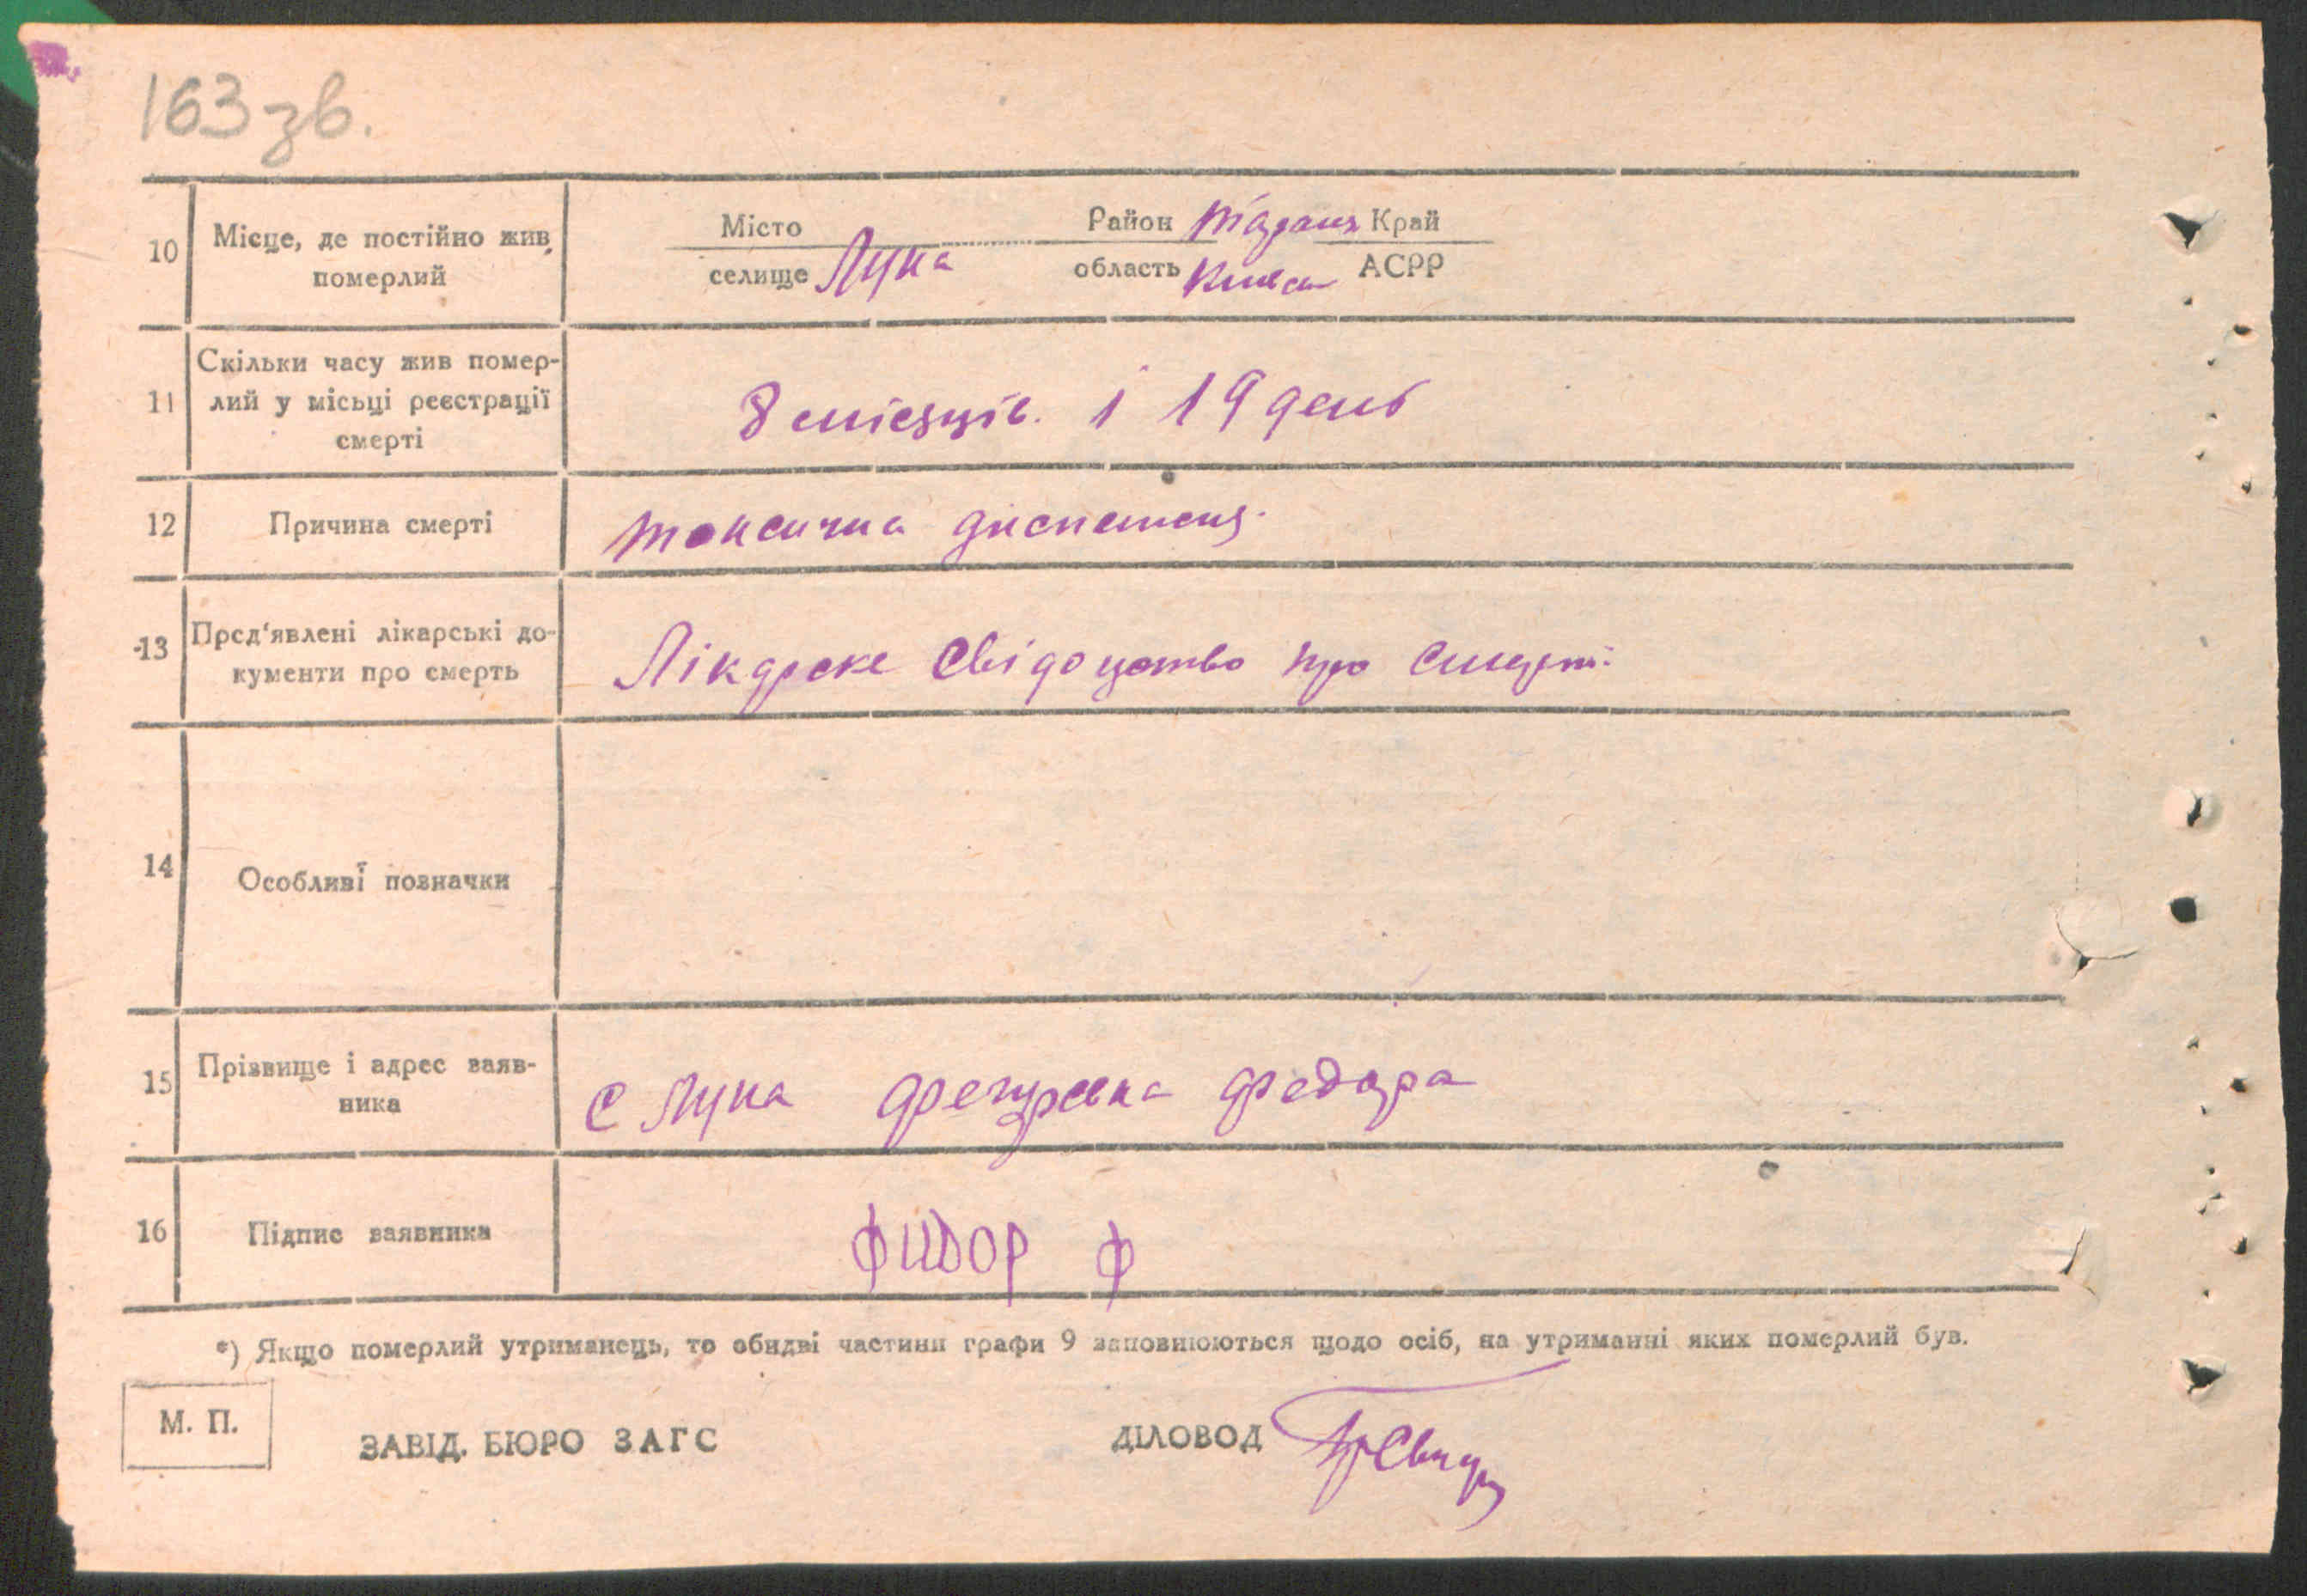 163 зв.
10 Місце, де постійно жив померлий
Місто Район Край
селище Лука область Київсь АСРР
11 Скільки часу жив помер-
лий у місьці реєстрації
смерті
8 місяців. і 19 день
12 Причина смерті токсична диспепсия.
13 Пред'явлені лікарські до-
кументи про смерть
Лікарске свідоцтво про смерті.
14 Особливі позначки
15 Прізвище і адрес заяв-
ника
с Лука Федора
16 Підпис заявника Фидор Ф
*) Якщо померлий утриманець, то обидві частини графи 9 заповнюються щодо осіб, на утриманні яких померлий був.
М. П.
ЗАВІД. БЮРО ЗАГС ДІЛОВОД